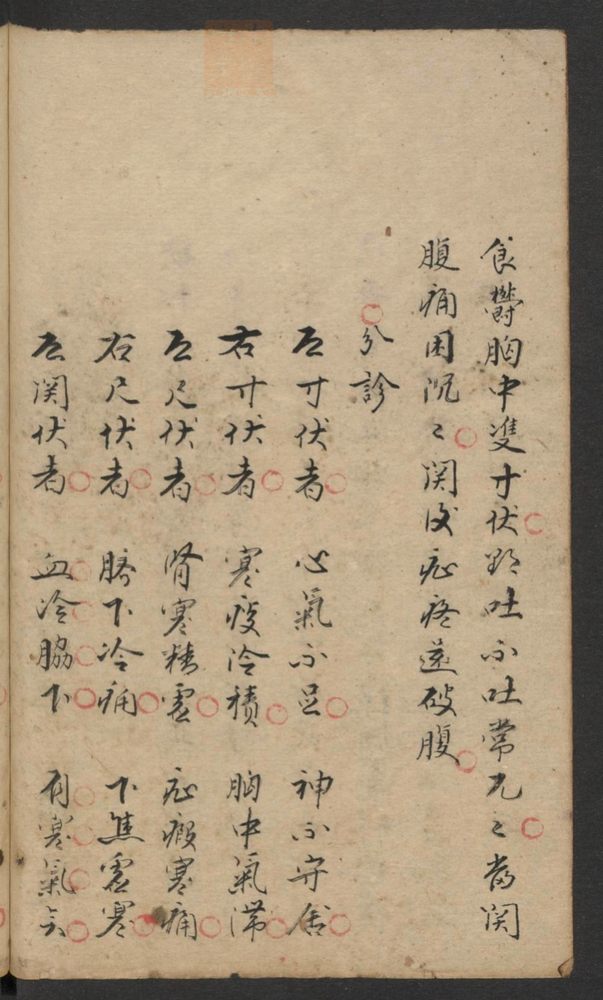 食欝胸中雙寸伏欲吐不吐常兀々當関
腹痛困沉々関後疝疼還破腹
分診
左寸伏者 心氣不足 神不守舍
右寸伏者 寒痰冷積 胸中氣滞
左尺伏者 腎寒精虛 疝瘕寒痛
右尺伏者 臍下冷痛 下焦虛寒
左関伏者 血冷脇下 有寒氣